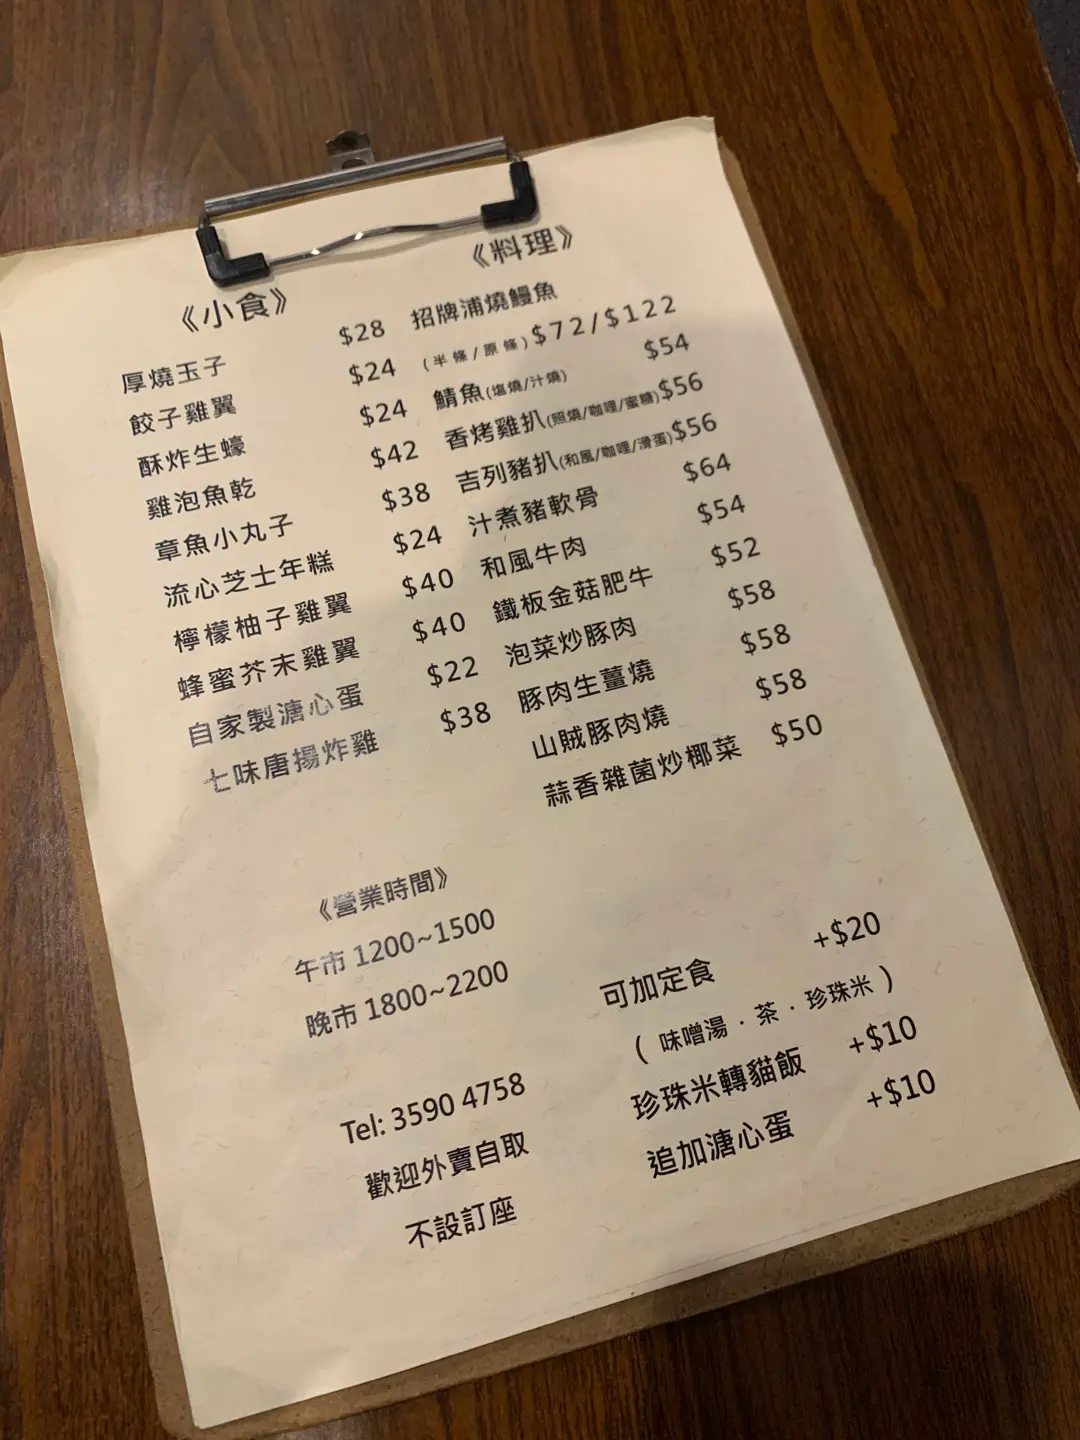 《小食》
厚燒玉子 $28
餃子雞翼 $24
酥炸生蠔 $24
雞泡魚乾 $42
章魚小丸子 $38
流心芝士年糕 $24
檸檬柚子雞翼 $40
蜂蜜芥末雞翼 $40
自家製溏心蛋 $22
七味唐揚炸雞 $38
《料理》
招牌浦燒鰻魚
(半條/原條)$72/$122
鯖魚(塩燒/汁燒) $54
香烤雞扒(照燒/咖哩/蜜糖)$56
吉列豬扒(和風/咖哩/滑蛋)$56
汁煮豬軟骨 $64
和風牛肉 $54
鐵板金菇肥牛 $52
泡菜炒豚肉 $58
豚肉生薑燒 $58
山賊豚肉燒 $58
蒜香雜菌炒椰菜 $50
《營業時間》
午市 1200~1500
晚市 1800~2200
Tel: 3590 4758
歡迎外賣自取
不設訂座
可加定食 +$20
( 味噌湯 · 茶 · 珍珠米 )
珍珠米轉貓飯 +$10
追加溏心蛋 +$10